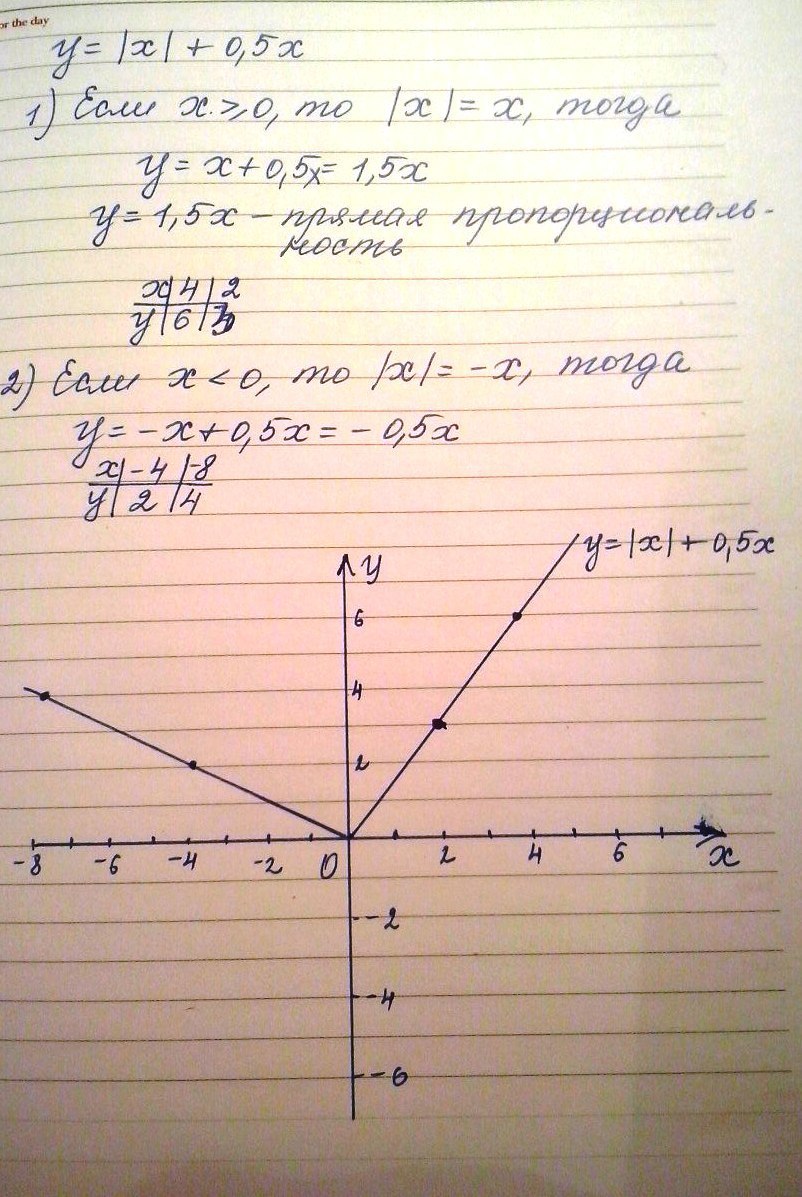 or the day
y = |x| + 0,5x
1) Если x ≥ 0, то |x| = x, тогда
y = x + 0,5x = 1,5x
y = 1,5x – прямая пропорциональ-
ность
x | 4 | 2
y | 6 | 3
2) Если x < 0, то |x| = -x, тогда
y = -x + 0,5x = -0,5x
x | -4 | -8
y | 2 | 4
y = |x| + 0,5x
y
6
4
2
-8 -6 -4 -2 0 2 4 6 x
-2
-4
-6